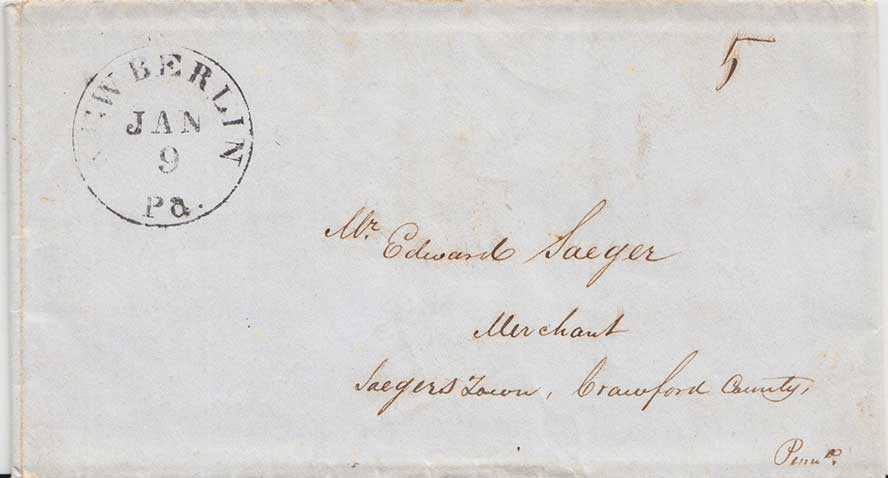 NEW BERLIN
JAN
9
Pa.
5
Mr. Edward Saeger
Merchant
Saegers Town, Crawford County,
Penna.